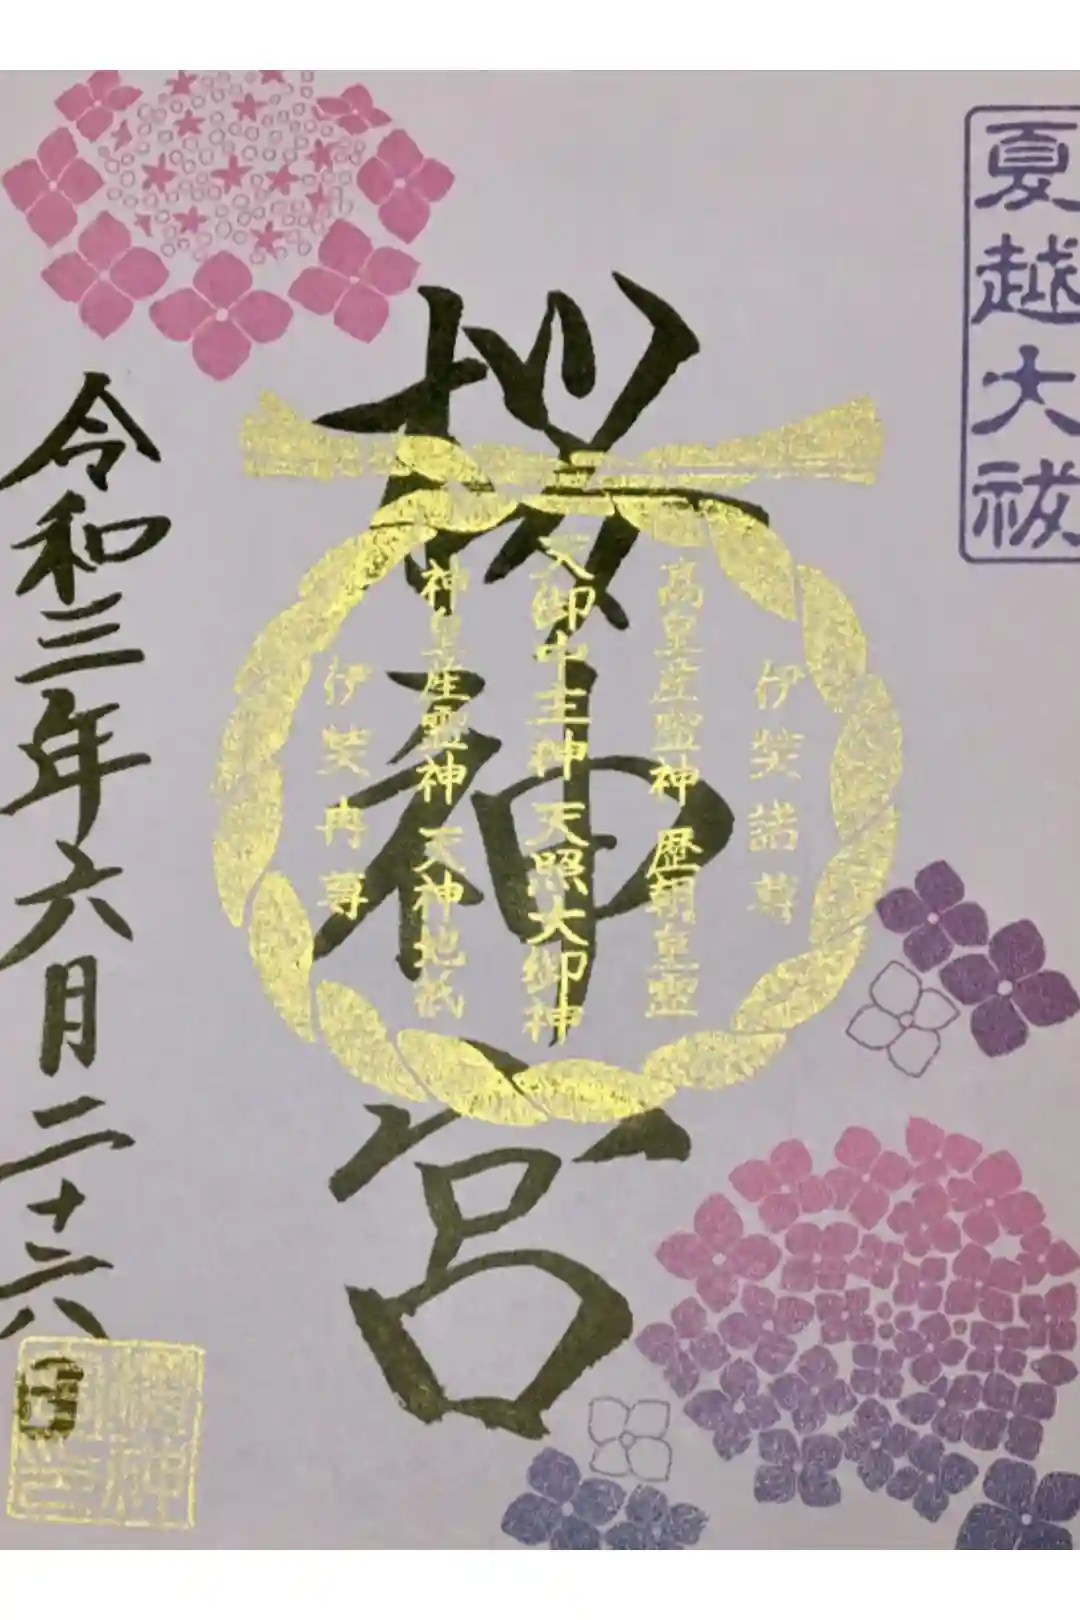 夏越大祓
桜神宮
伊弉諾尊
高皇産霊神 歴朝皇霊
天御中主神 天照大御神
神皇産霊神 天神地祇
伊弉冉尊
令和三年六月二十六日